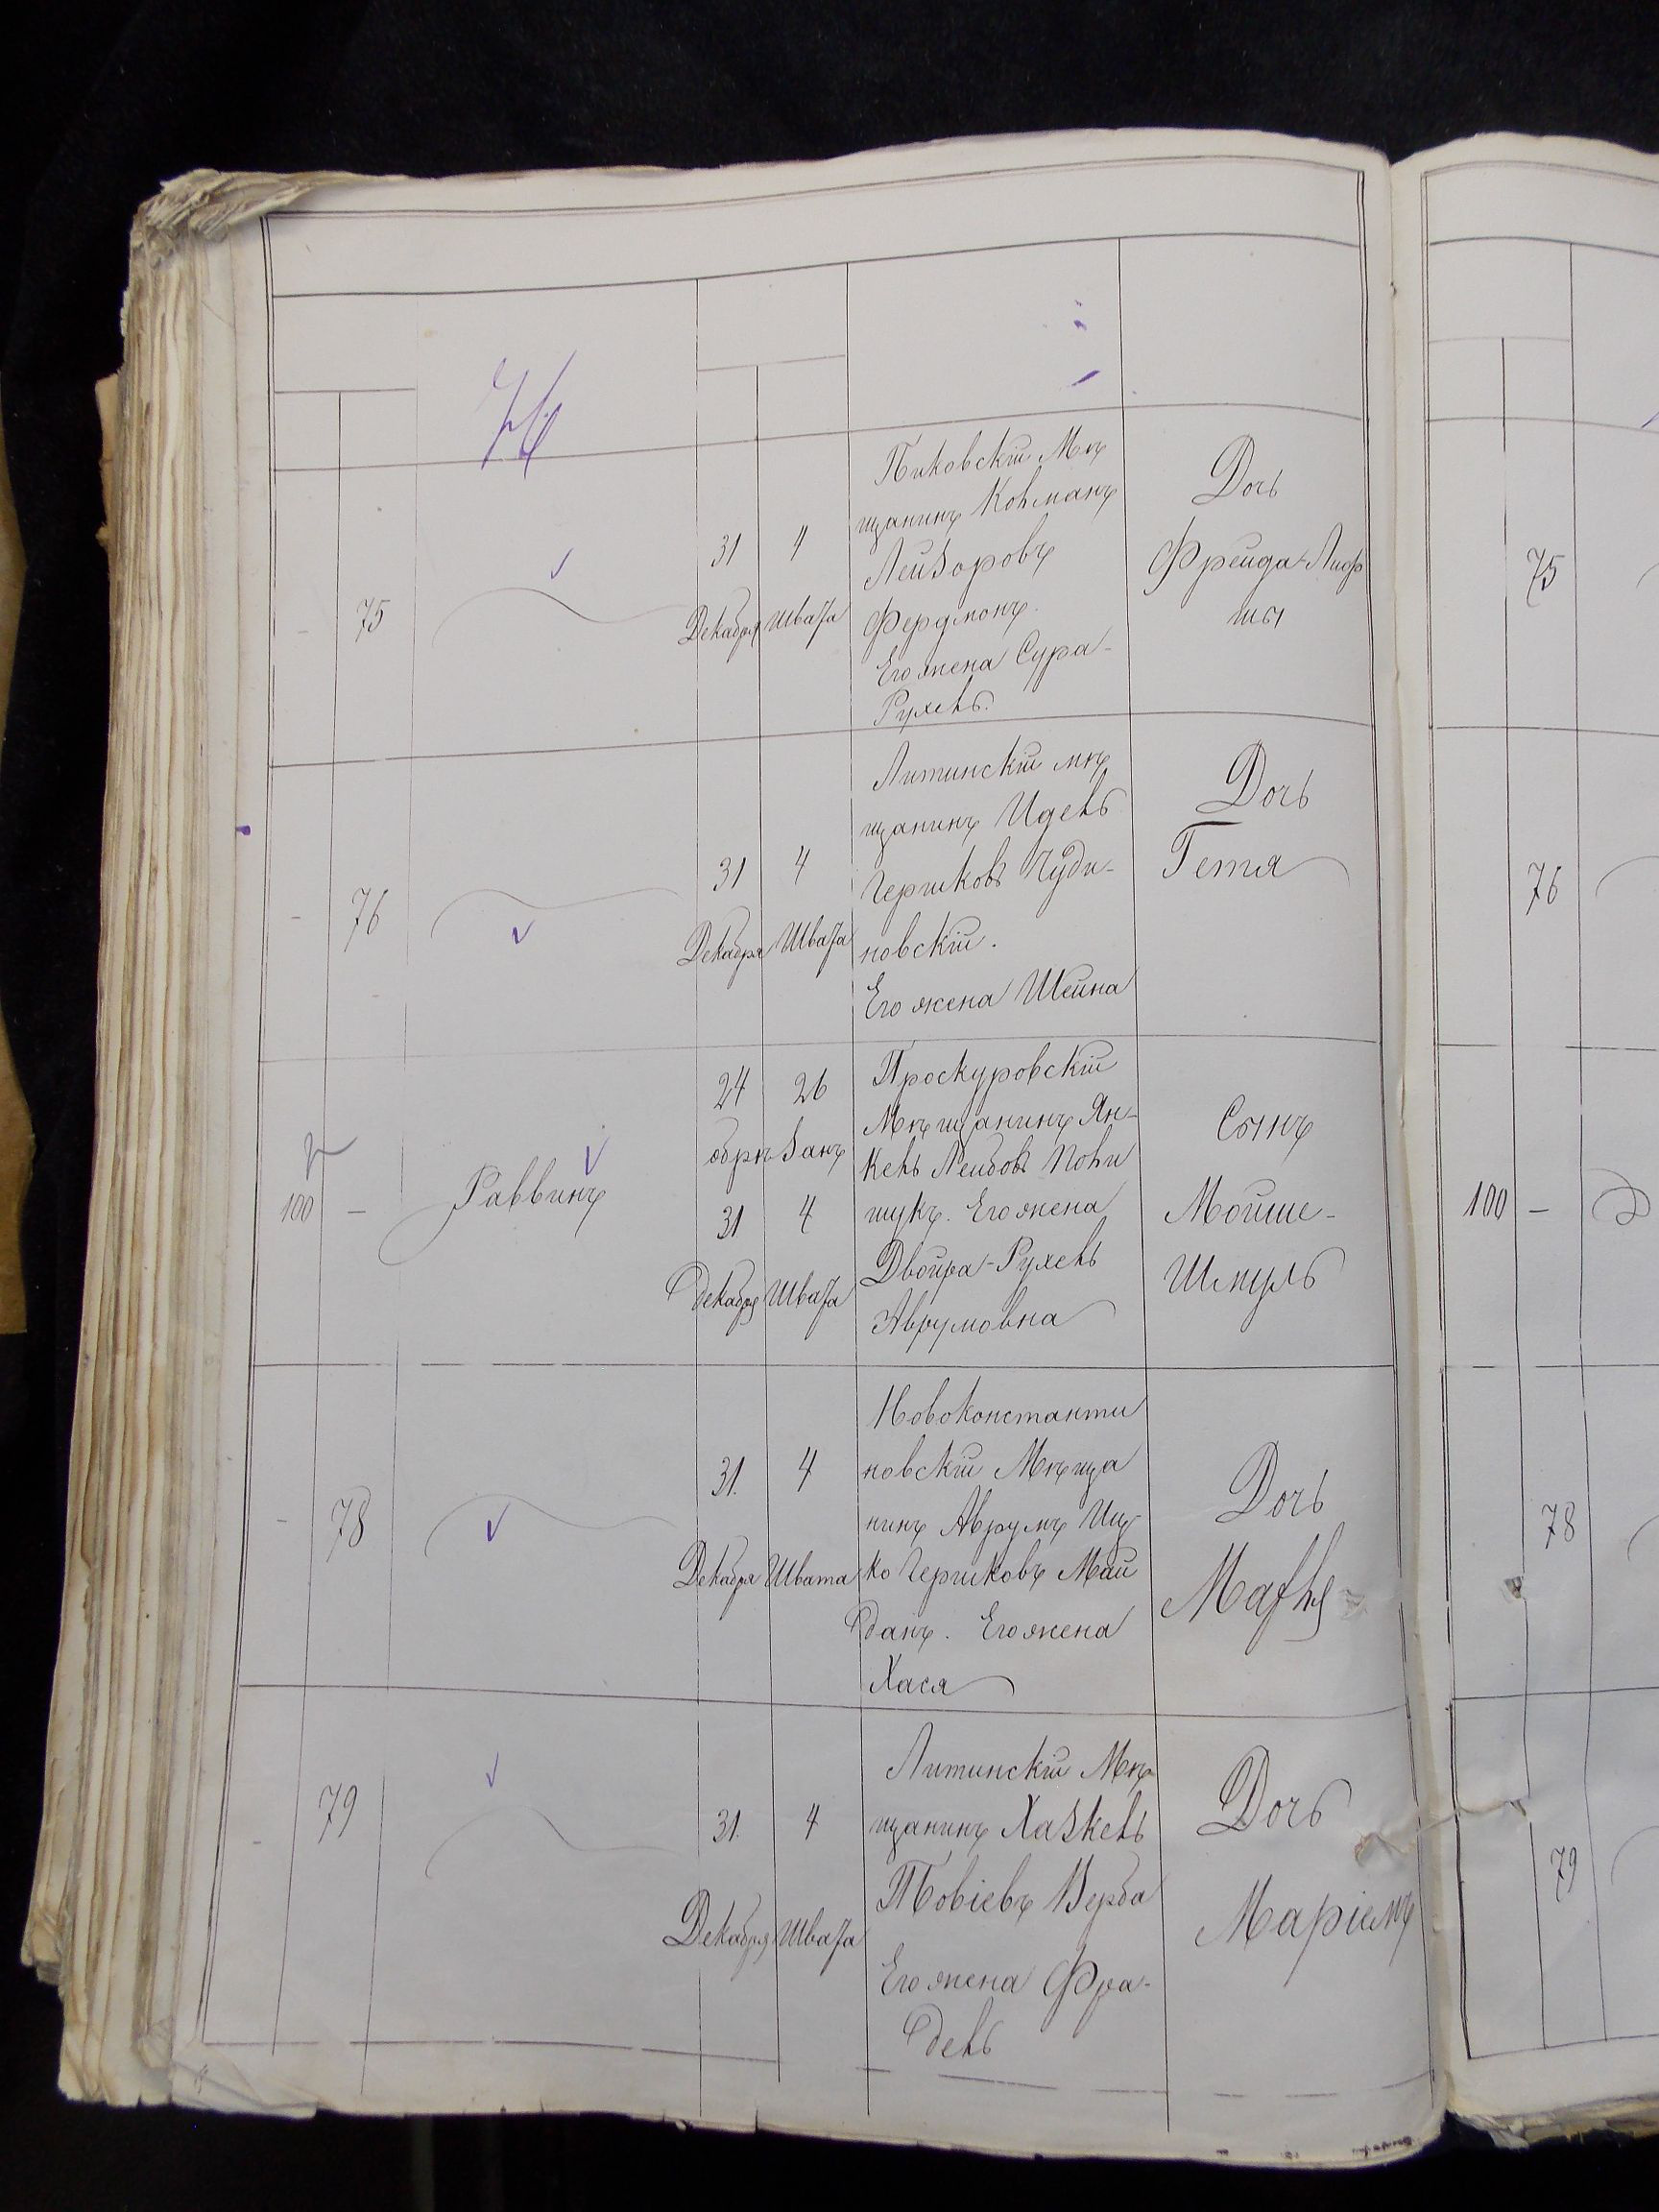 75
31
Декабря
4
Швата
Пиковскій Мѣ
щанинъ Кольманъ
Лейзоровъ
Фердманъ.
Его жена Сура-
Рухель.
Дочь
Фрейда-Лиф
ши
75
-
76
31
Декабря
4
Швата
Литинскій мѣ
щанинъ Идель
Гершковъ Чуди-
новскій.
Его жена Шейна
Дочь
Гетя
76
100
-
Раввинъ
24
26
обрѣзанъ
31
Декабря
4
Швата
Проскуровскій
Мѣщанинъ Ян-
кель Лейбовъ Поли
щукъ. Его жена
Двойра-Рухель
Аврумовна
Сынъ
Мойше-
Шмуль
100
-
-
78
31.
Декабря
4
Швата
Новоконстанти
новскій Мѣща
нинъ Аврумъ Иц
ко Гершковъ Май
данъ. Его жена
Хася
Дочь
78
-
79
31.
Декабря
4
Швата
Литинскій Мѣ
щанинъ Хаскель
Товіевъ Верба
Его жена Фра-
дель
Дочь
Маріемъ
79